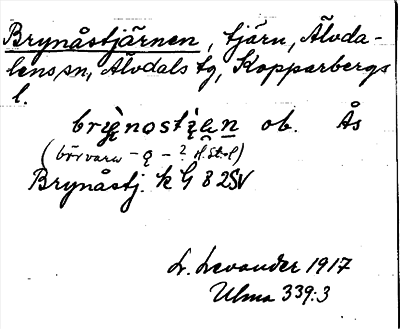 Brynåstjärnen, tjärn, Älvda-
lens sn, Älvdals tg, Kopparbergs
l.
ob. Ås
(bör vara - o̜ - ?
Brynåstj. k G 8 2SV
L. Levander 1917
Ulma 339:3